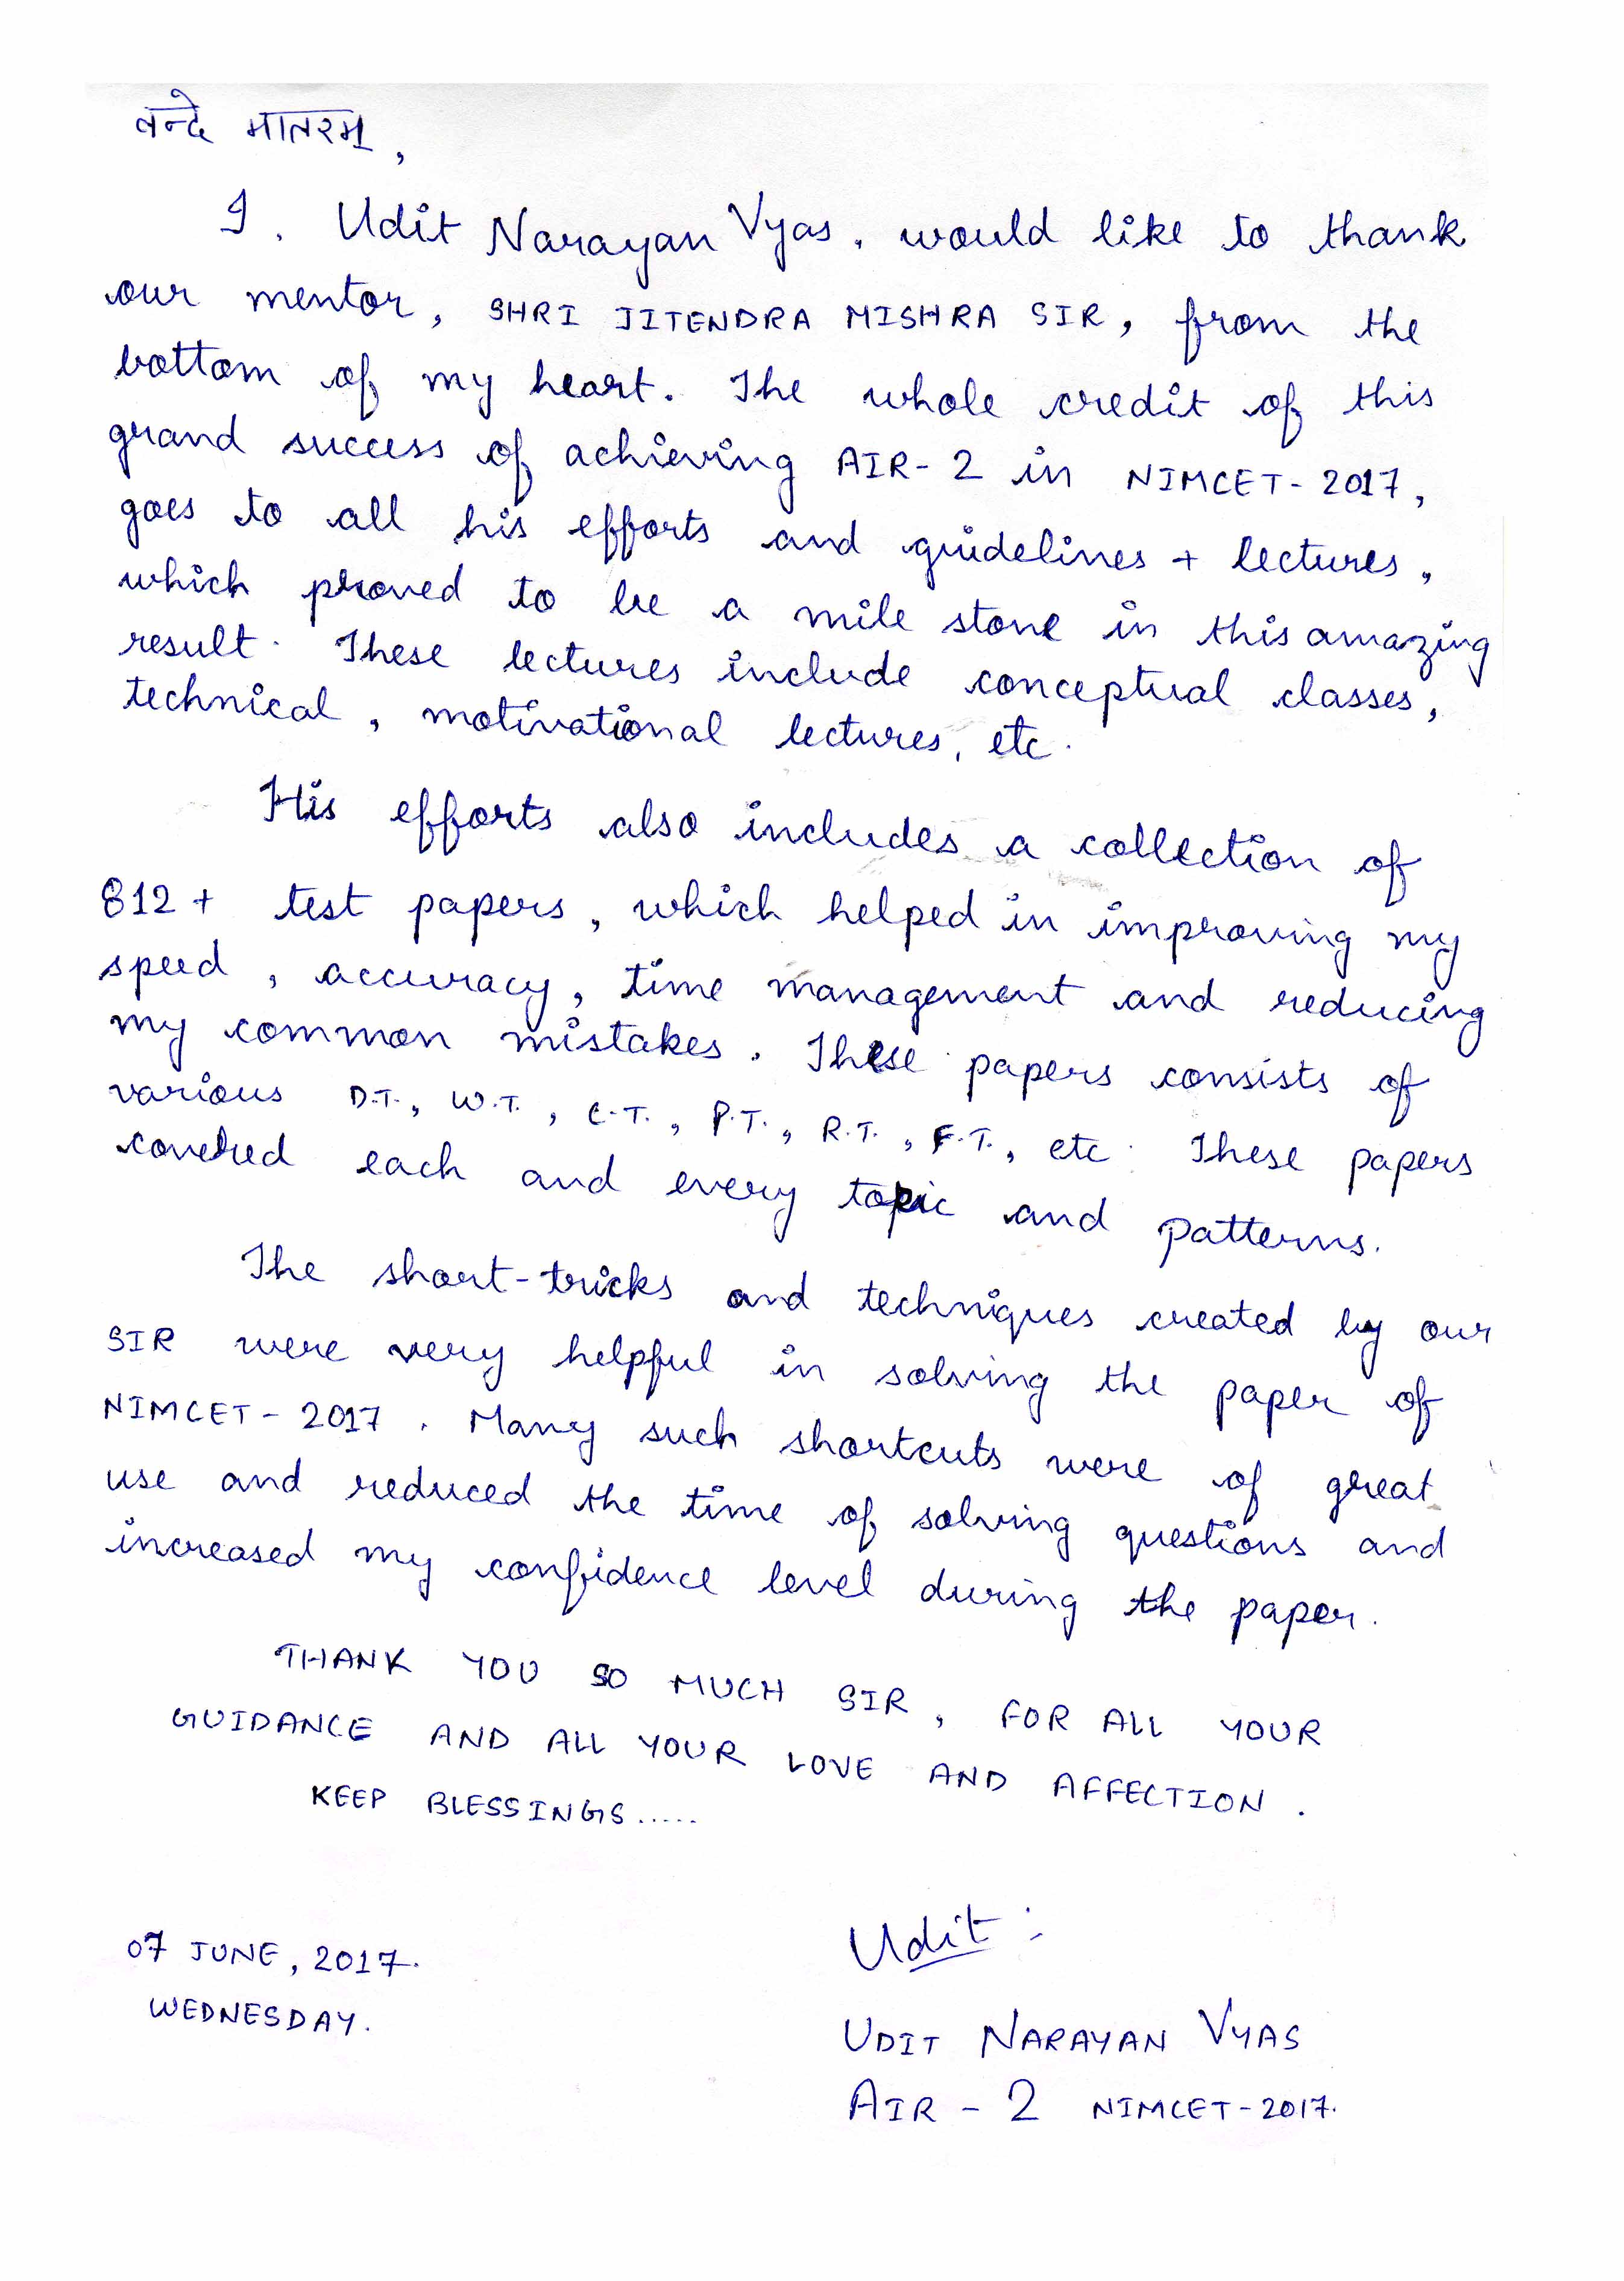 वन्दे मातरम,
I, Udit Narayan Vyas, would like to thank
our mentor, SHRI JITENDRA MISHRA SIR, from the
bottom of my heart. The whole credit of this
grand success of achieving AIR-2 in NIMCET-2017,
goes to all his efforts and guidelines + lectures,
which proved to be a mile stone in this amazing
result. These lectures include conceptual classes,
technical, motivational lectures, etc.
His efforts also includes a collection of
812+ test papers, which helped in improving my
speed, accuracy, time management and reducing
my common mistakes. These papers consists of
various D.T., W.T., C.T., P.T., R.T., F.T., etc. These papers
covered each and every topic and patterns.
The short-tricks and techniques created by our
SIR were very helpful in solving the paper of
NIMCET-2017. Many such shortcuts were of great
use and reduced the time of solving questions and
increased my confidence level during the paper.
THANK YOU SO MUCH SIR, FOR ALL YOUR
GUIDANCE AND ALL YOUR LOVE AND AFFECTION.
KEEP BLESSINGS.....
Udit:
07 JUNE, 2017.
WEDNESDAY.
UDIT NARAYAN VYAS
AIR - 2 NIMCET-2017.